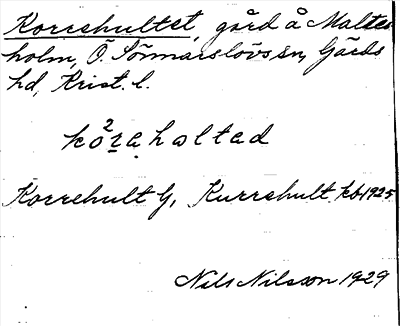 Korrehultet, gård å Maltes
holm, Ö. Sönnarslövs sn, Gärds
hd, Krist. l.
kò²rahaltad
Korrehult G, Kurrehult kb 1925
Nils Nilsson 1929